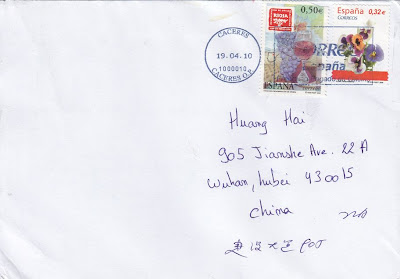 CACERES
19.04.10
1000010
CACERES O.P.
RIOJA
0,50€
ESPAÑA
España 0,32€
CORREOS
España
Huang Hai
905 Jianshe Ave. 22A
Wuhan, hubei 430015
China